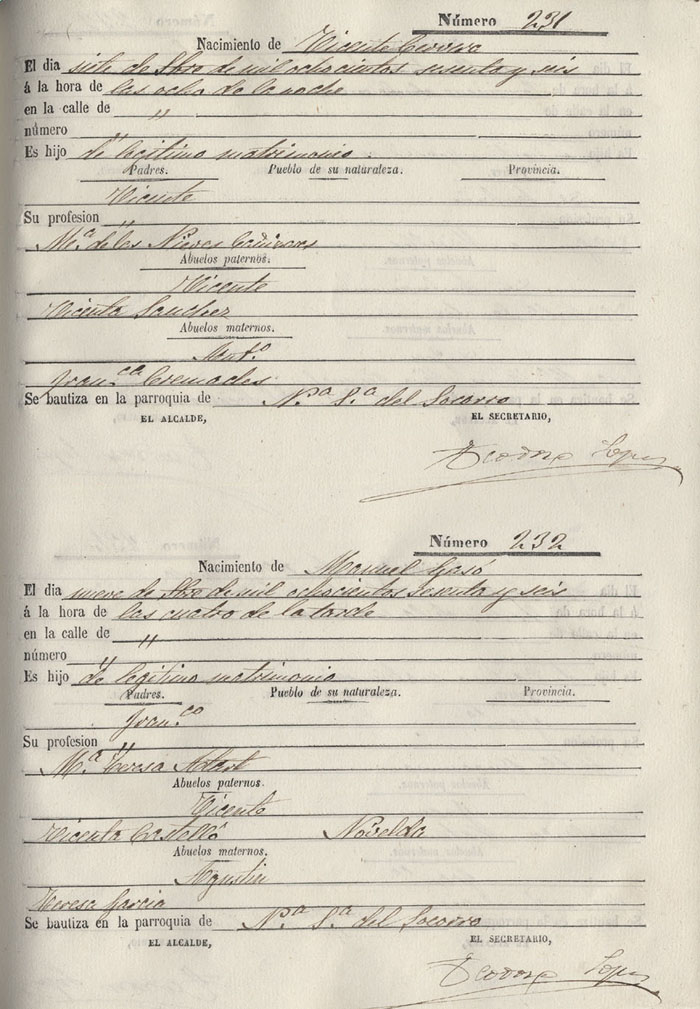 Número 231
Nacimiento de Vicente Cerdá
El dia siete de Sbre de mil ochocientos sesenta y seis
á la hora de las ocho de la noche
en la calle de "
número "
Es hijo de legitimo matrimonio.
Padres. Pueblo de su naturaleza. Provincia.
Vicente
Su profesion "
Mª de las Nieves
Abuelos paternos.
Vicente
Vicenta Sanchez
Abuelos maternos.
Antº
Franca Cremades
Se bautiza en la parroquia de Nª Sª del Socorro
EL ALCALDE, EL SECRETARIO,
Teodoro Lopez
Número 232
Nacimiento de Manuel Gasó
El dia nueve de Sbre de mil ochocientos sesenta y seis
á la hora de las cuatro de la tarde
en la calle de "
número "
Es hijo de legitimo matrimonio
Padres. Pueblo de su naturaleza. Provincia.
Franco
Su profesion "
Mª Teresa
Abuelos paternos.
Vicente
Vicenta Castelló Novelda
Abuelos maternos.
Agustin
Teresa Garcia
Se bautiza en la parroquia de Nª Sª del Socorro
EL ALCALDE, EL SECRETARIO,
Teodoro Lopez